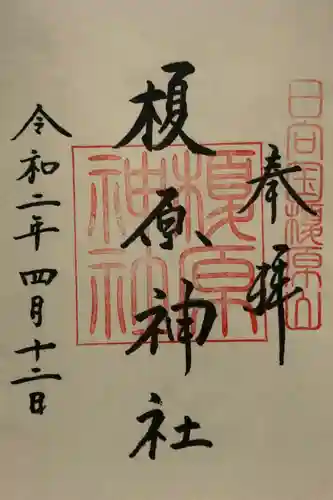 奉拝
日向国榎原山
榎原神社
榎原神社
令和二年四月十二日